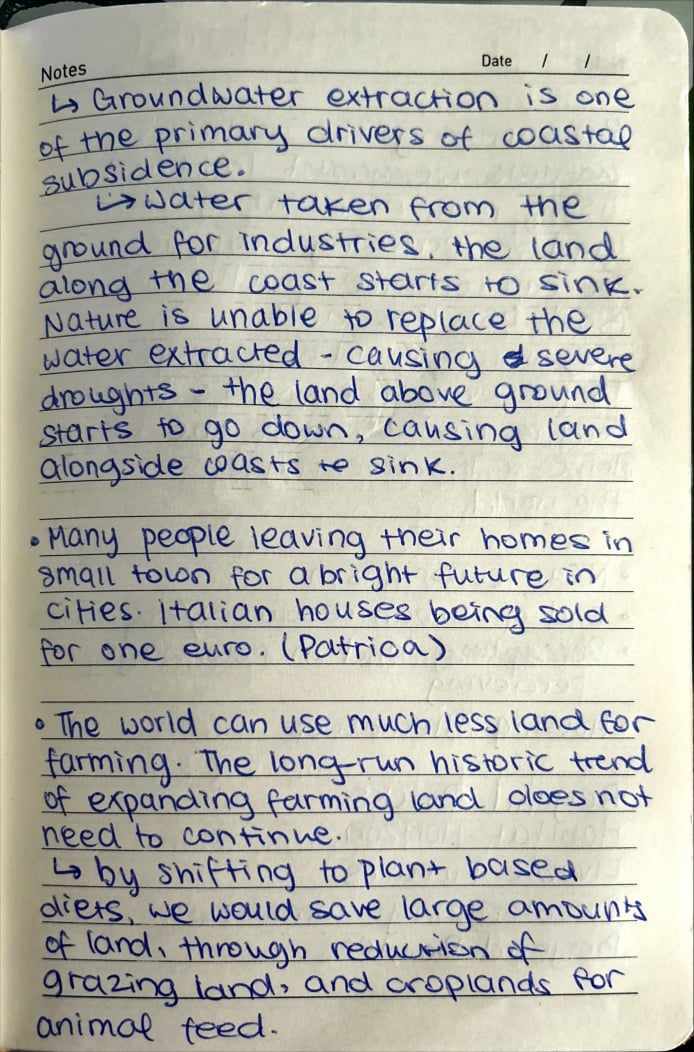 Notes
Date / /
↳ Groundwater extraction is one
of the primary drivers of coastal
subsidence.
↳ Water taken from the
ground for industries, the land
along the coast starts to sink.
Nature is unable to replace the
water extracted - causing severe
droughts - the land above ground
starts to go down, causing land
alongside coasts to sink.
• Many people leaving their homes in
small town for a bright future in
cities. Italian houses being sold
for one euro. (Patrica)
• The world can use much less land for
farming. The long-run historic trend
of expanding farming land does not
need to continue.
↳ by shifting to plant based
diets, we would save large amounts
of land, through reduction of
grazing land, and croplands for
animal feed.